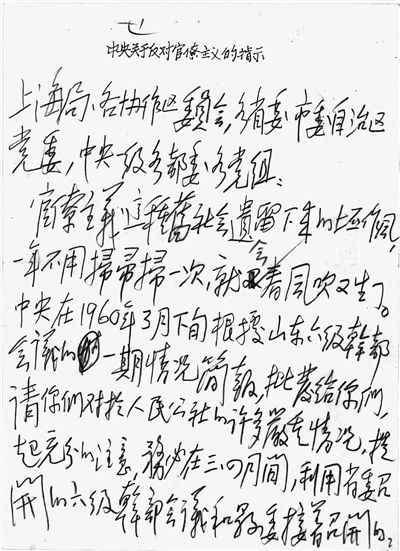 七、
中央关于反对官僚主义的指示
上海局、各协作区委员会，各省委市委自治区
党委，中央一级各部委各党组：
官寮主義這種舊社会遺留下来的坏作風，
一年不用掃帚掃一次，就会春風吹又生了。
中央在1960年3月下旬根據山东六级幹部
会議的一期情况简報，批發给你们，
请你們对於人民公社的许多嚴重情况，提
起充分的注意，務必在三、四月間，利用省委召
開的六级幹部会議和縣委接着召開的